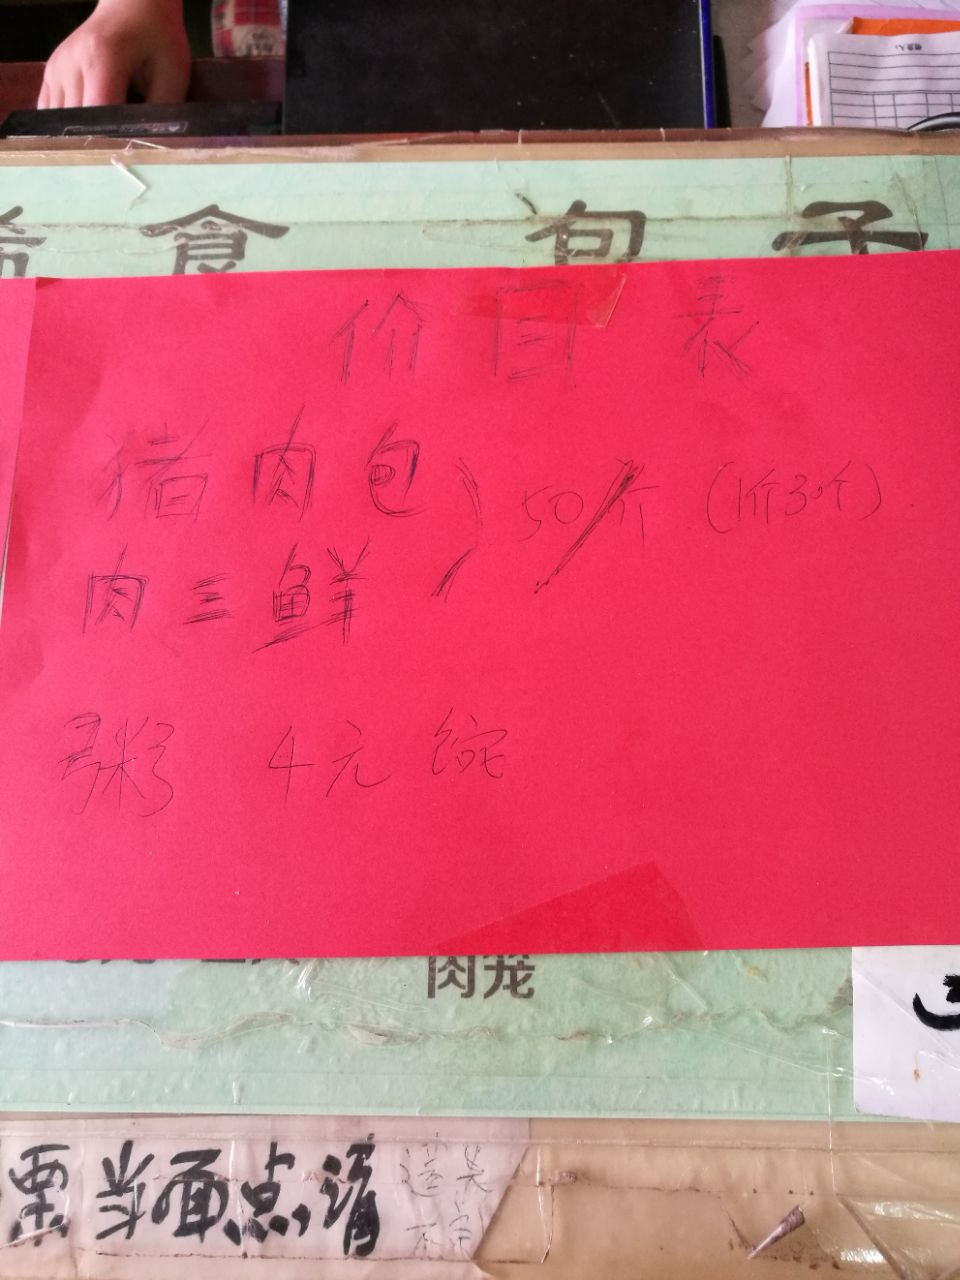 稀食 包子
价目表
猪肉包 50/斤 (1斤30个)
肉三鲜
粥 4元 碗
肉笼
粟米面点请